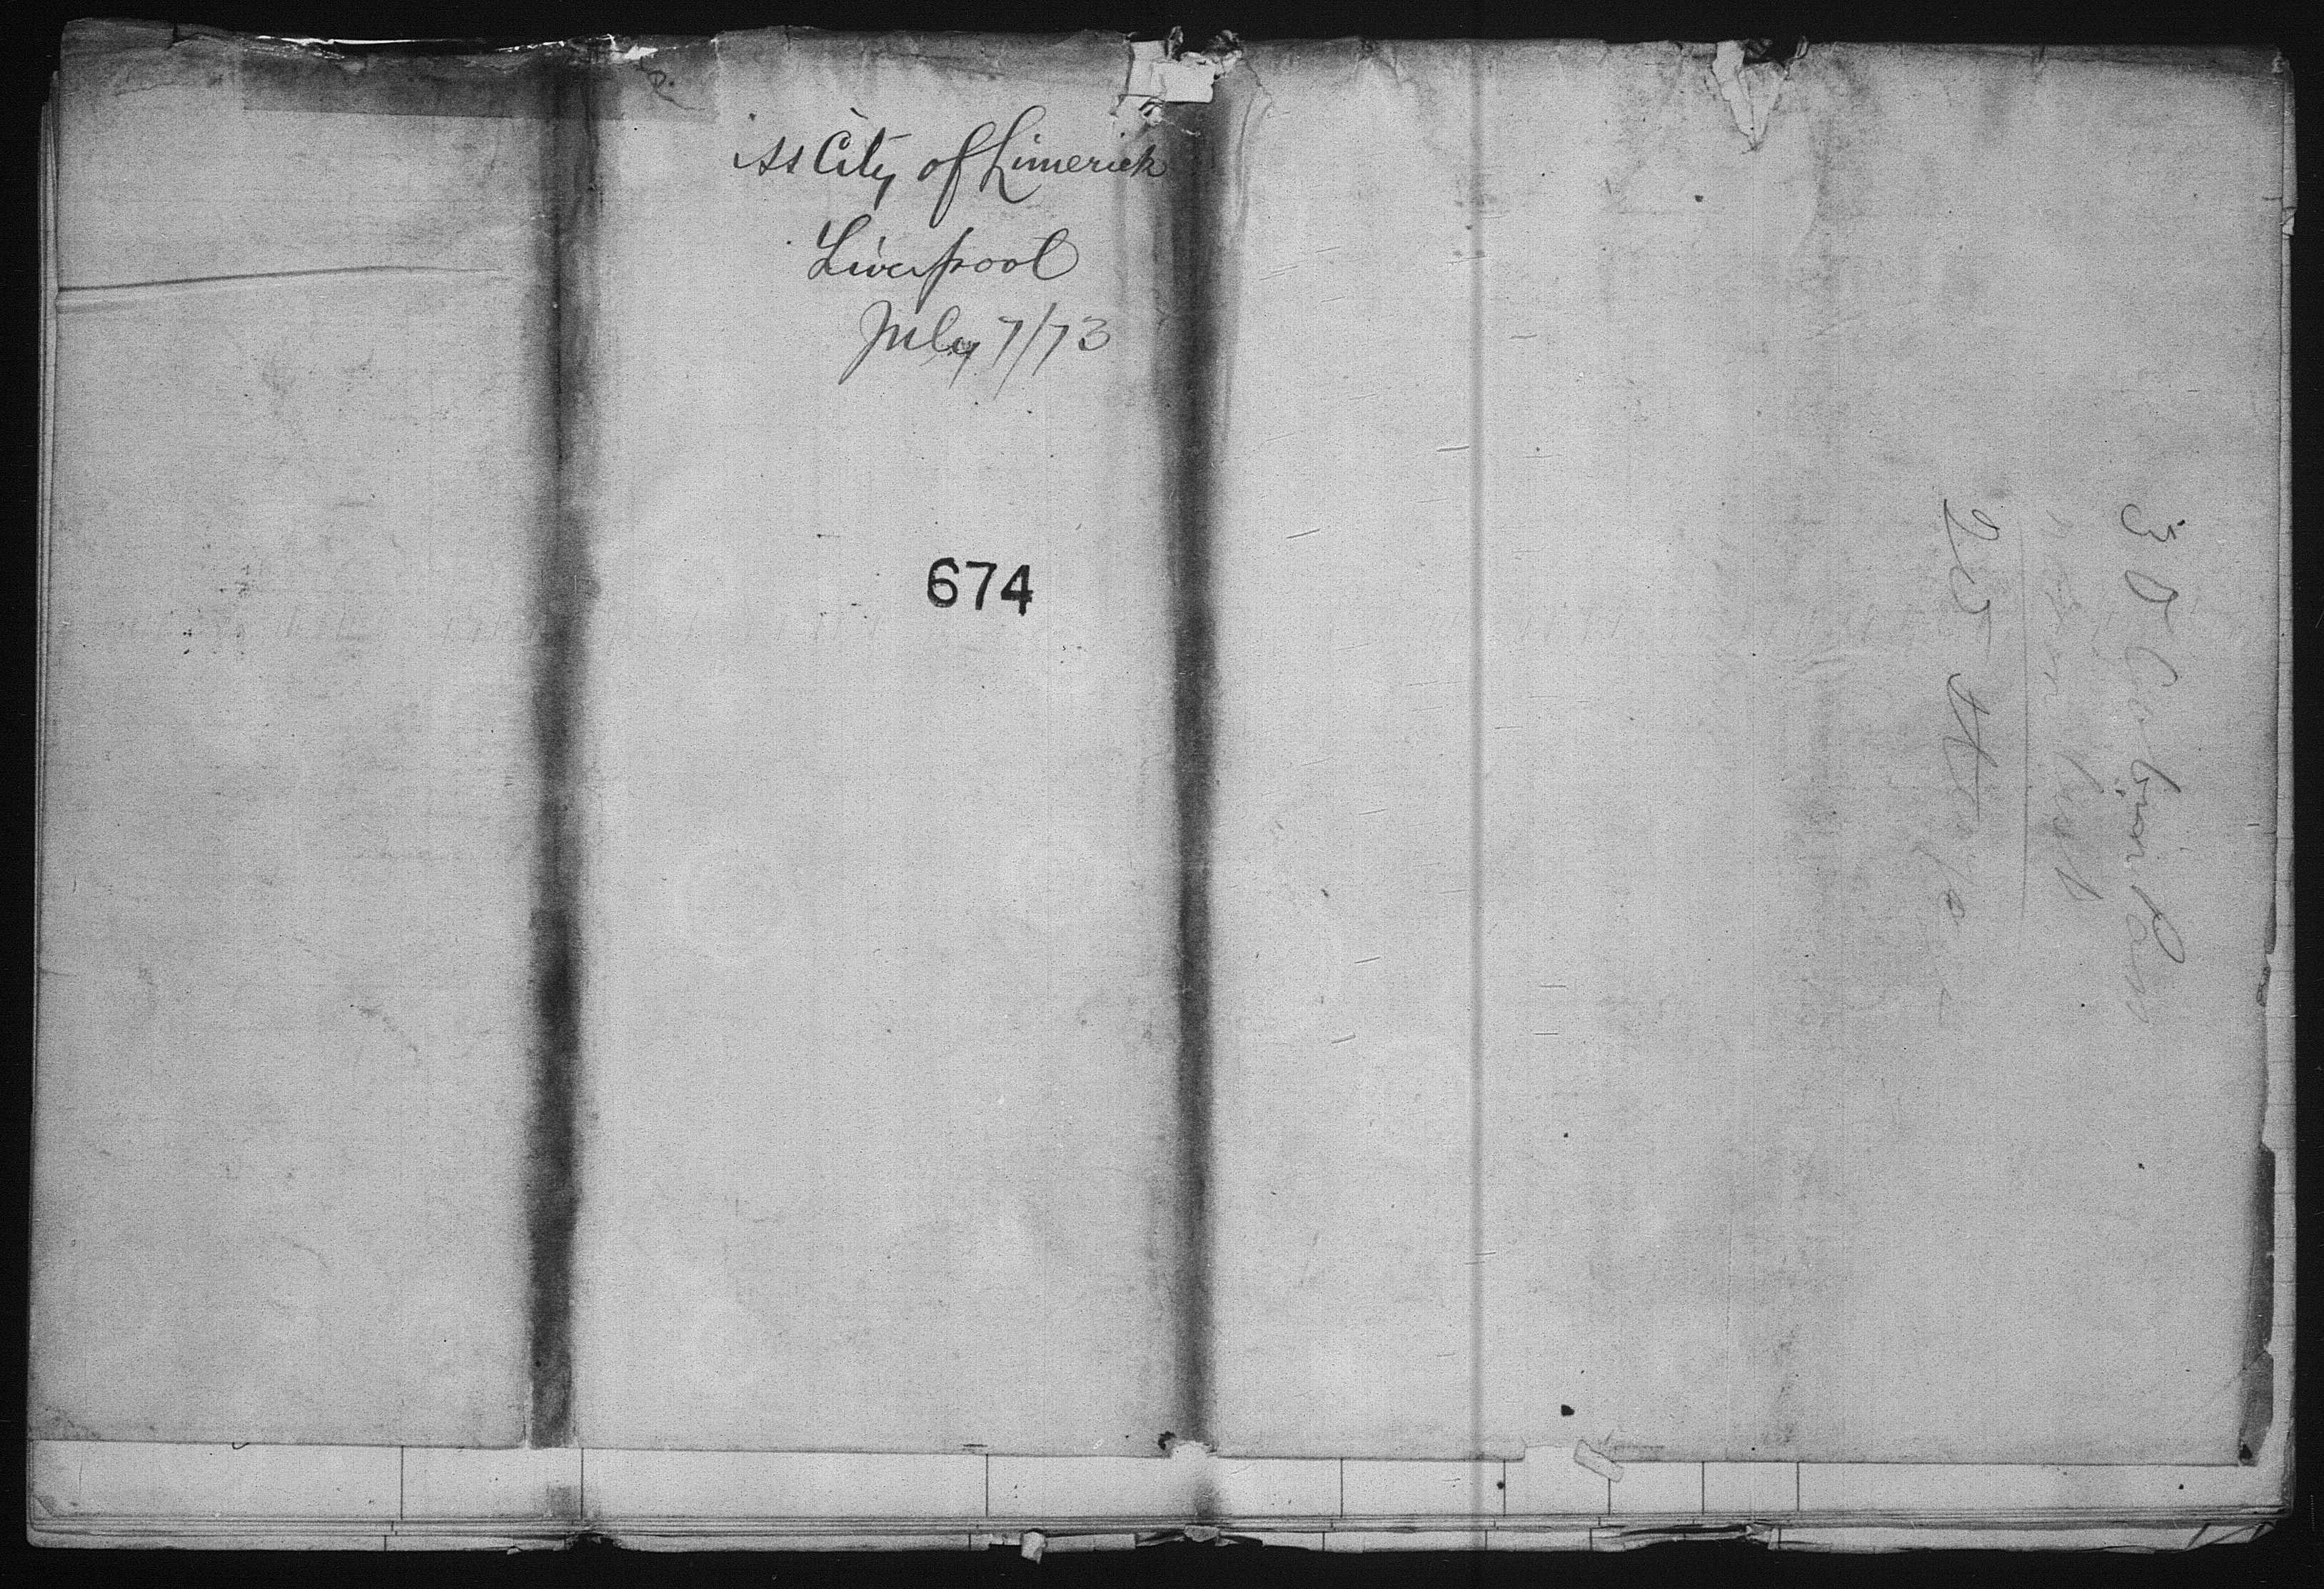 ss City of Limerick
Liverpool
July 7/73
674
3 Cabin Pass
25 St